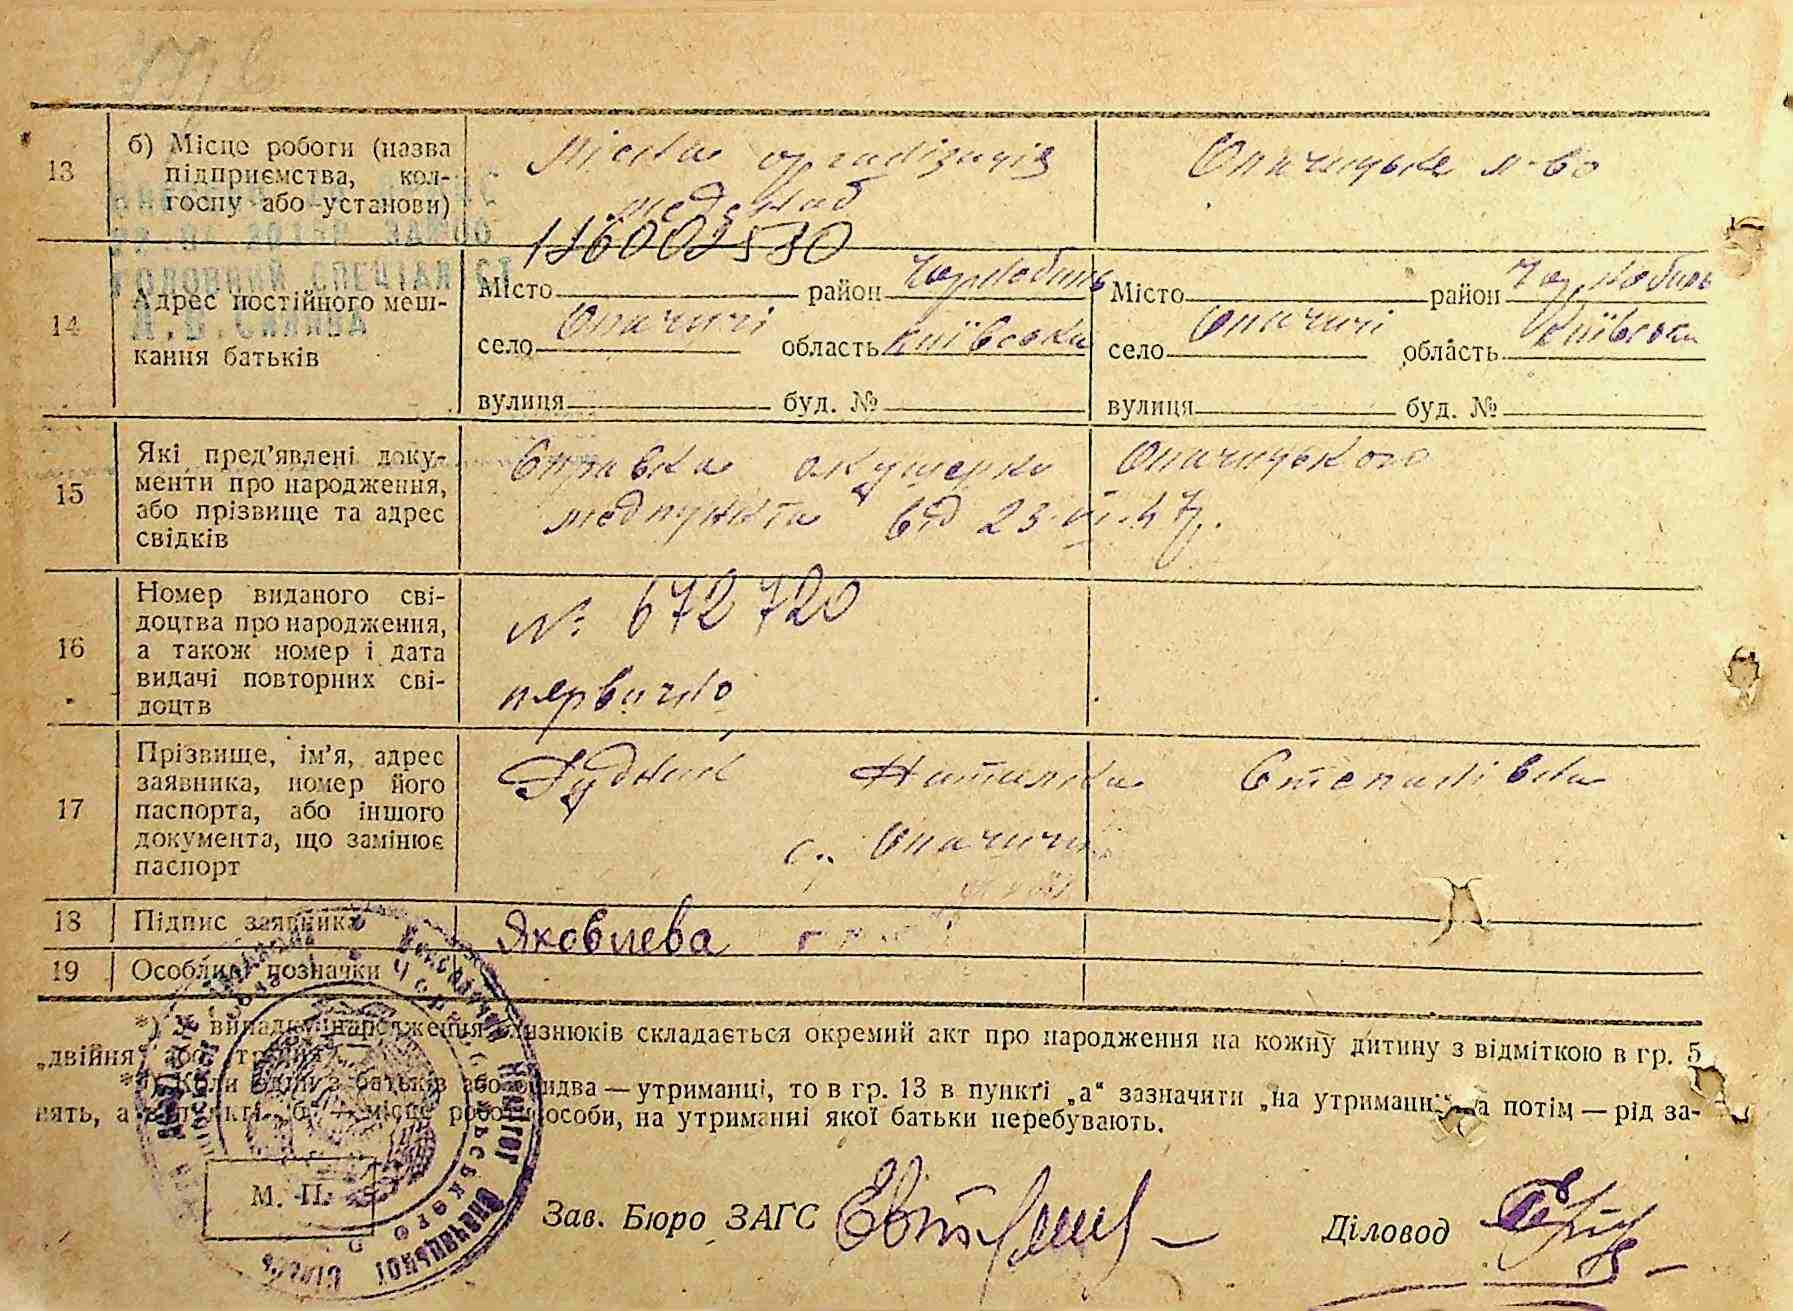 13
б) Місце роботи (назва
підприємства, кол-
госпу або установи)
Опачицьке л-во
116002530
14
Адрес постійного меш-
кання батьків
Місто район Чорнобиль
село Опачичі область Київська
вулиця буд. №
Місто район Чорнобиль
село Опачичі область Київська
вулиця буд. №
15
Які пред'явлені доку-
менти про народження,
або прізвище та адрес
свідків
Справка акушерки Опачицького
медпункта від 23.VI.47р.
16
Номер виданого сві-
доцтва про народження,
а також номер і дата
видачі повторних сві-
доцтв
№ 672720
первично
17
Прізвище, ім'я, адрес
заявника, номер його
паспорта, або іншого
документа, що замінює
паспорт
Наталка Степанівна
с. Опачичі
18 Підпис заявника
Яковлева
19 Особливі позначки
*) У випадку народження близнюків складається окремий акт про народження на кожну дитину з відміткою в гр. 5
„двійня" або „трійня".
**) Коли один з батьків або обидва — утриманці, то в гр. 13 в пункті „а" зазначити „на утриманні", а потім — рід за-
нять, а в пункті „б" — місце роботи особи, на утриманні якої батьки перебувають.
М. П.
Зав. Бюро ЗАГС
Діловод